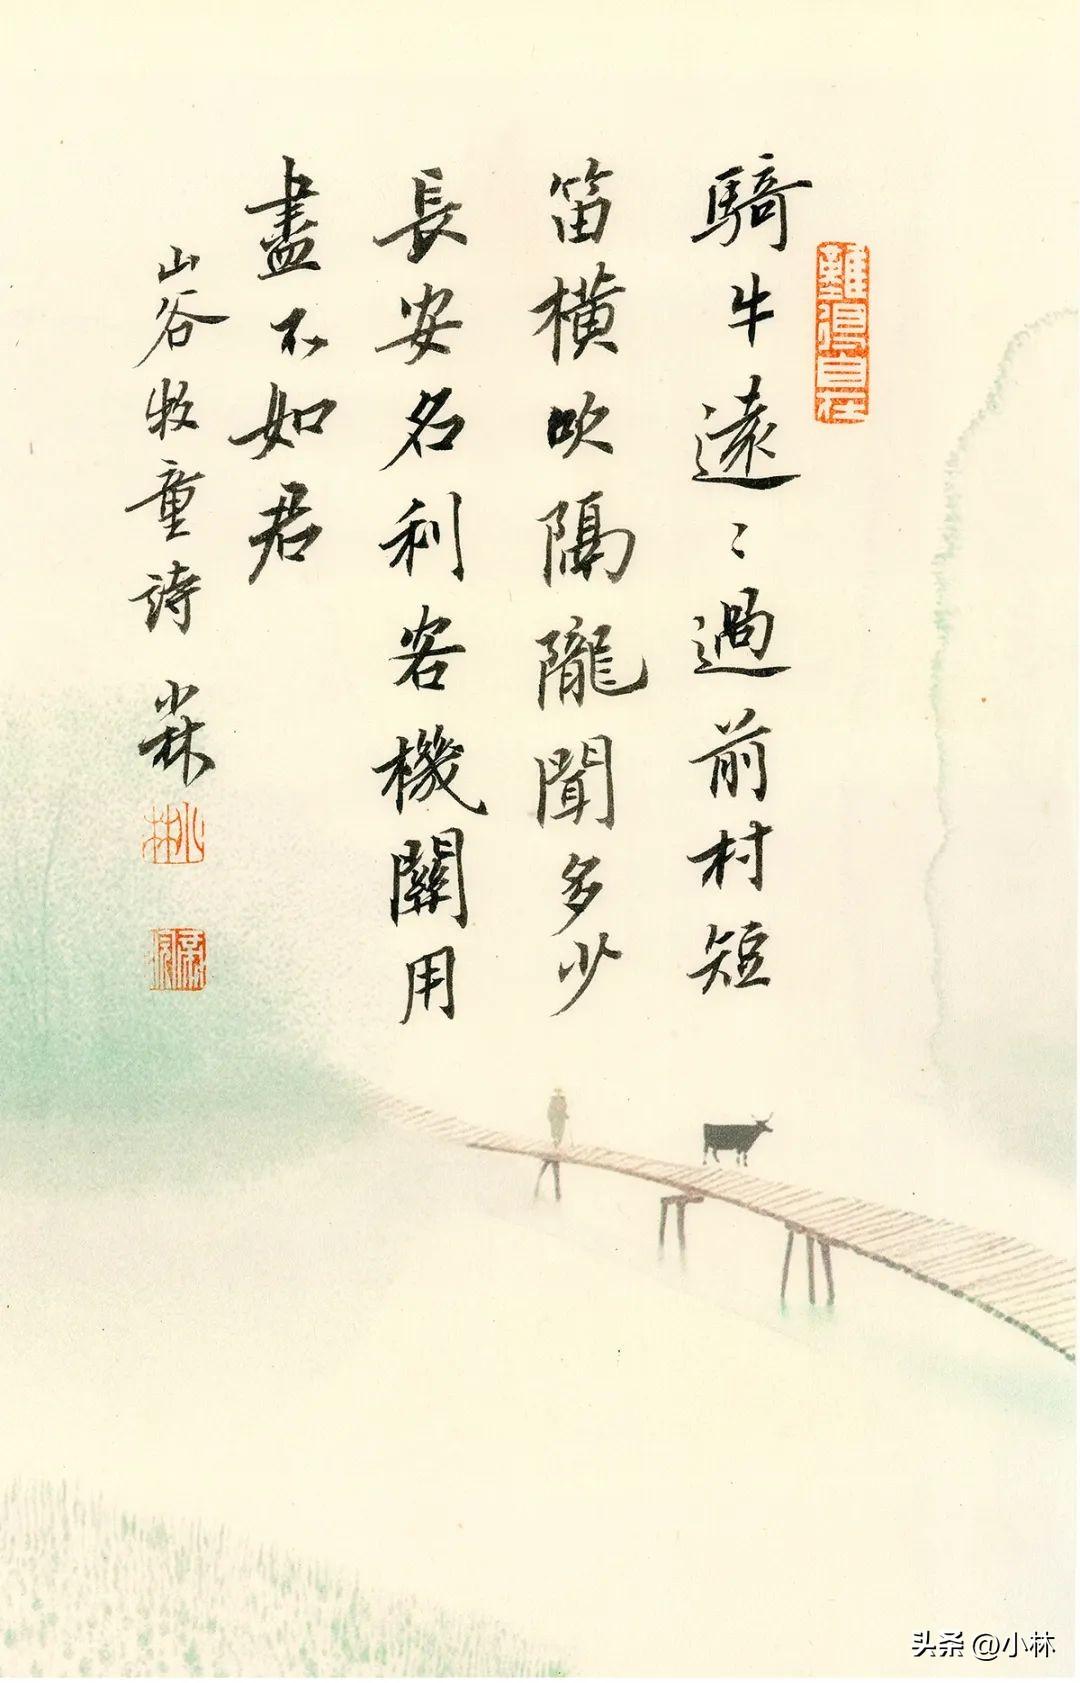 難得自在
騎牛遠〻過前村短
笛橫吹隔隴聞多少
長安名利客機關用
盡不如君
山谷牧童詩 小林
小林
头条 @小林